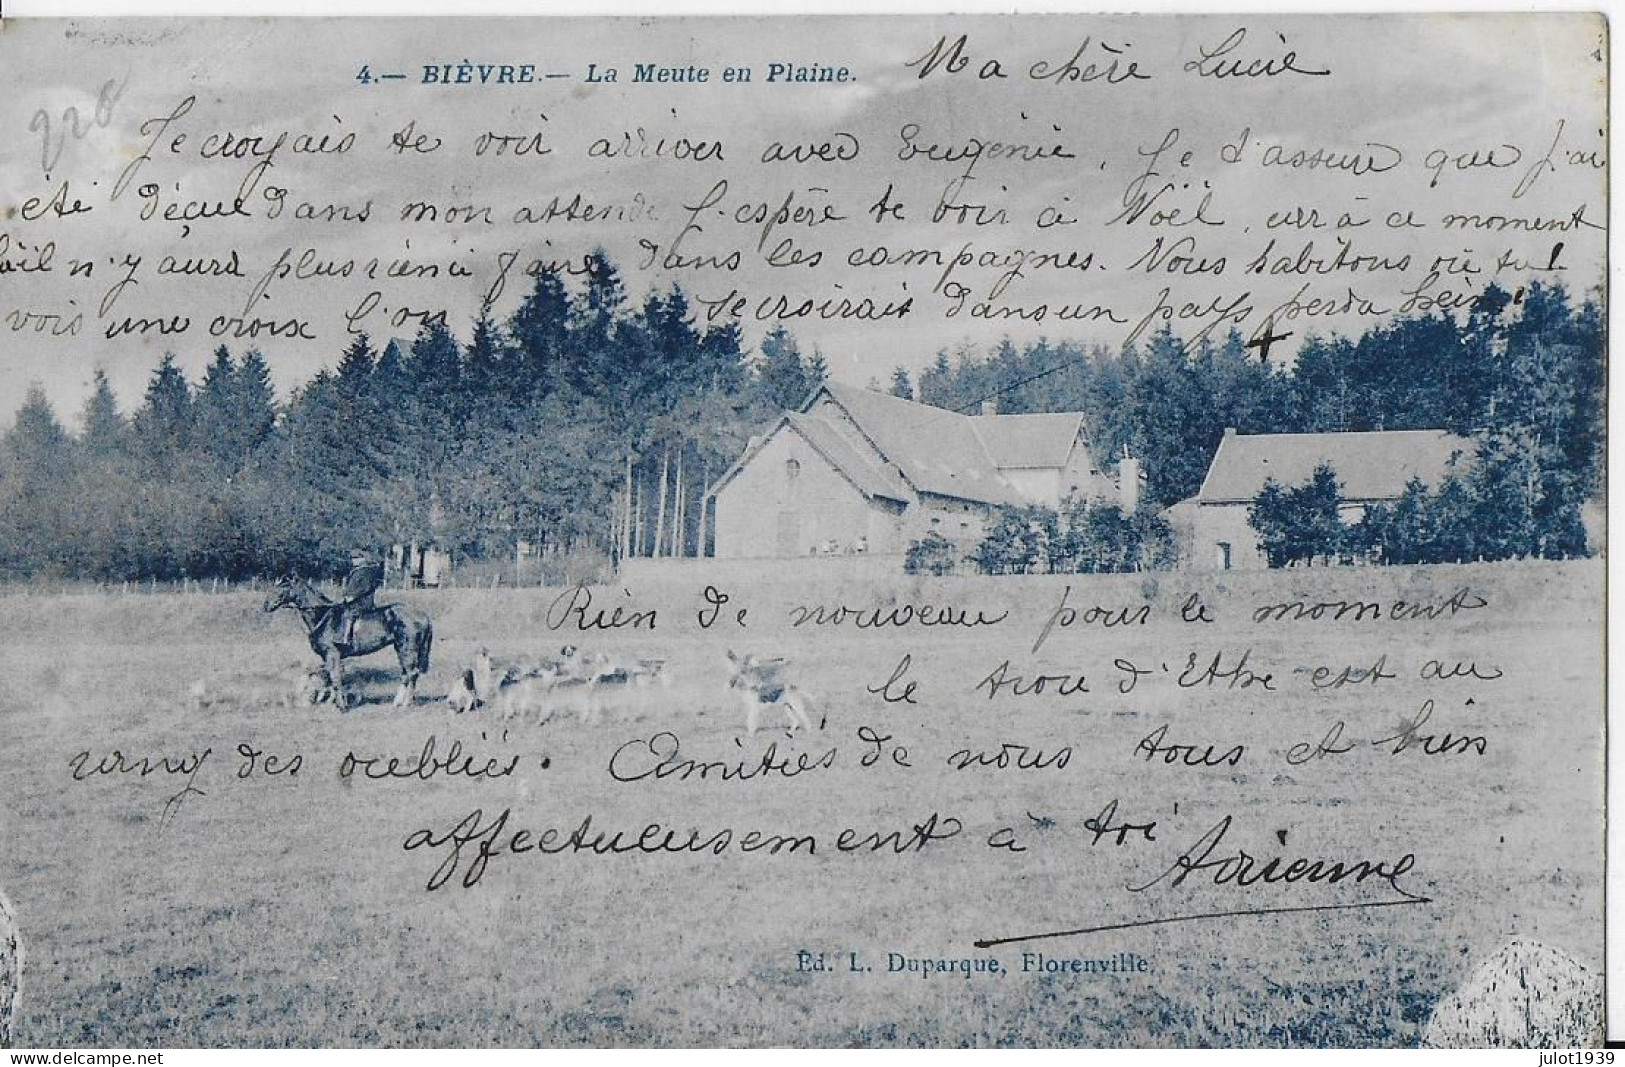 4.— BIÈVRE.— La Meute en Plaine.
Ma chère Lucie
228
Je croyais te voir arriver avec Eugénie, Je t'assure que j'ai
été déçue dans mon attende J'espère te voir à Noël, car à ce moment
là il n'y aura plus rien à faire dans les campagnes. Nous habitons où tu
vois une croix l'on se croirait dans un pays perdu hein!
Rien de nouveau pour le moment
le trou d'Ethe est au
rang des oubliés. Amitiés de nous tous et bien
affectueusement à toi
Adrienne
Éd. L. Duparque, Florenville.
julot1939